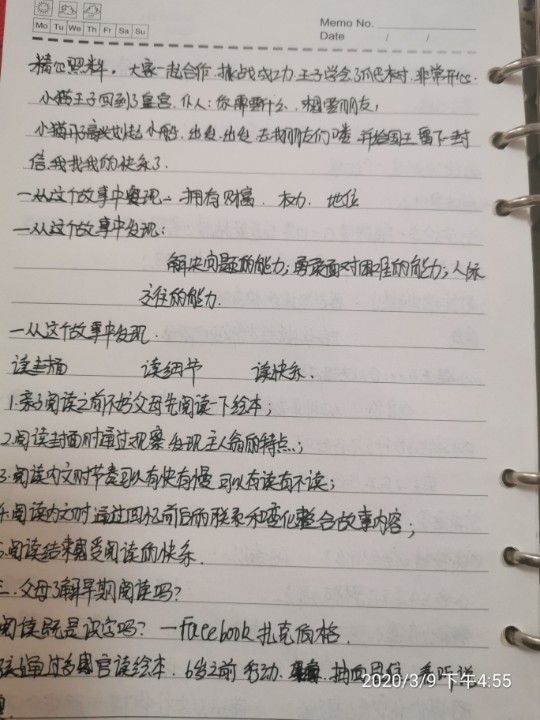 Memo No.
Mo Tu We Th Fr Sa Su
Date / /
大家一起合作,挑战成功,王子学会了爬树,非常开心.
小猫王子回到了皇宫,仆人:你需要什么,
小猫 去找朋友们 并给国王留下一封
信,我找我的快乐了.
一从这个故事中发现:拥有财富、权力、地位
一从这个故事中发现:
解决问题的能力;勇敢面对困难的能力;人际
交往的能力.
一从这个故事中发现.
读封面 读细节 读快乐.
1.亲子阅读之前不妨父母先阅读一下绘本;
2.阅读封面时通过观察发现主人翁的特点;
3.阅读内文时节奏可以有快有慢 可以有读有不读;
4.阅读内文时通过回忆前后的联系和变化整合故事内容;
5.阅读结束感受阅读的快乐.
三.父母了解早期阅读吗?
阅读就是识字吗?一Facebook扎克伯格.
通过多 官读绘本.6岁之前
2020/3/9 下午4:55